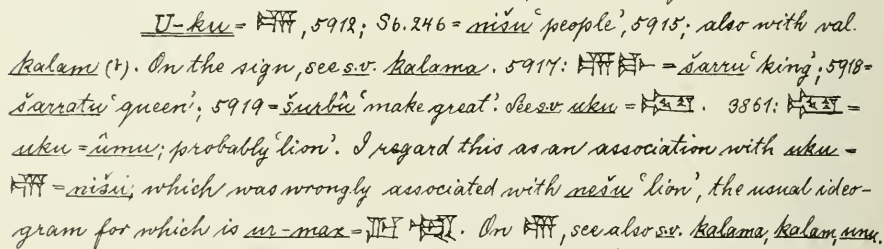 U-ku = 𒌦, 5912; Sb. 246 = nišu 'people', 5915; also with val.
kalam (?). On the sign, see s.v. kalama. 5917: = šarru 'king'; 5918 =
šarratu 'queen'; 5919 = šurbû 'make great'. See s.v. uku = . 3861: =
uku = ûmu; probably 'lion'. I regard this as an association with uku =
𒌦 = nišu; which was wrongly associated with nešu 'lion', the usual ideo-
gram for which is ur-max = . On 𒌦, see also s.v. kalama, kalam, unu.